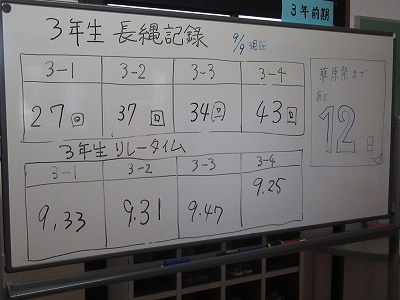 3年前期
3年生 長縄記録 9/9 現在
3-1 3-2 3-3 3-4
27回 37回 34回 43回
3年生 リレータイム
3-1 3-2 3-3 3-4
9.33 9.31 9.47 9.25
原祭まで
あと
12日